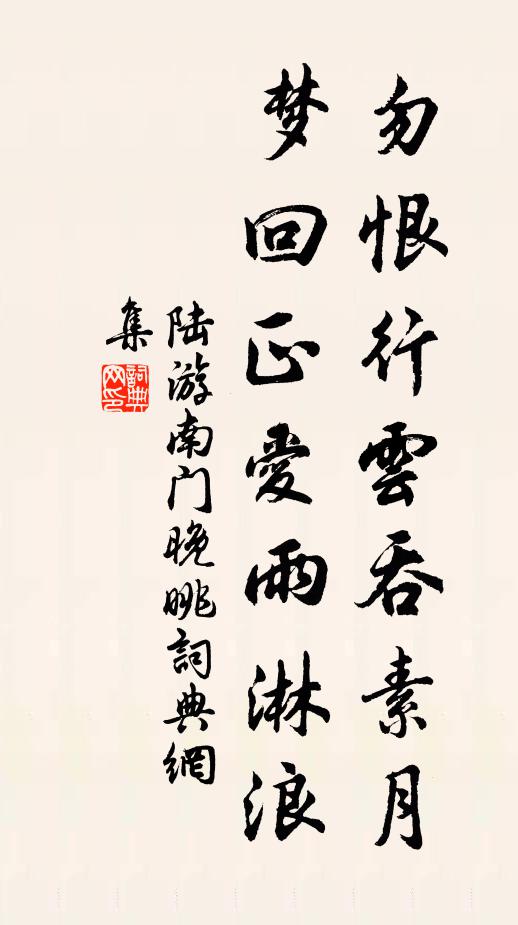 勿恨行雲吞素月
梦回正愛雨淋浪
陆游南门晚眺詞典網
集
詞典网印